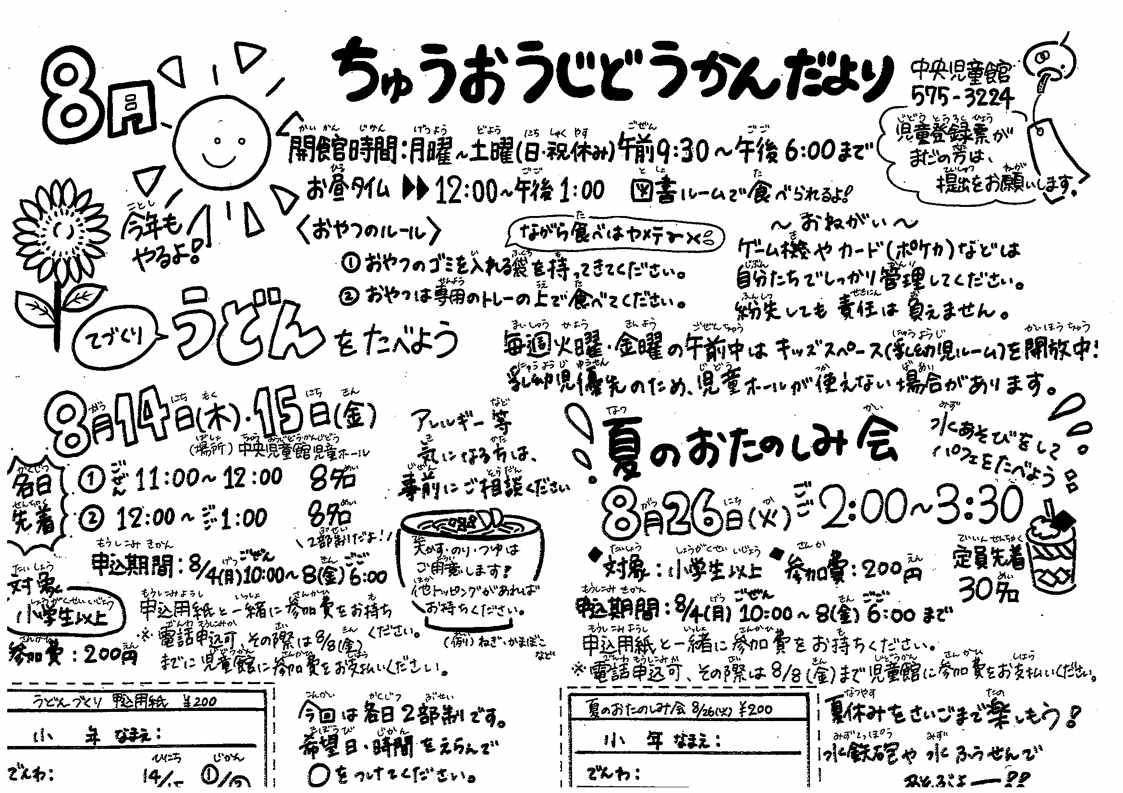 8月
ちゅうおうじどうかんだより
中央児童館
575-3224
児童登録票が
まだの方は、
提出をお願いします。
開館時間:月曜~土曜(日・祝休み)午前9:30~午後6:00まで
お昼タイム ▶▶ 12:00~午後1:00 図書ルームで食べられるよ!
今年も
やるよ!
〈おやつのルール〉
ながら食べはヤメテ〜
① おやつのゴミを入れる袋を持ってきてください。
② おやつは専用のトレーの上で食べてください。
~おねがい~
ゲーム機やカード(ポケカ)などは
自分たちでしっかり管理してください。
紛失しても責任は負えません。
てづくり
うどん
をたべよう
毎週火曜・金曜の午前中はキッズスペース(乳幼児ルーム)を開放中!
乳幼児優先のため、児童ホールが使えない場合があります。
8月14日(木)・15日(金)
(場所)中央児童館児童ホール
各日
先着
① ごぜん 11:00~12:00 8名
② 12:00~ごご1:00 8名
\2部制だよ!/
申込期間:8/4(月)10:00~8(金)6:00
対象
小学生以上
参加費:200円
申込用紙と一緒に参加費をお持ちください。
※電話申込可、その際は8/8(金)
までに児童館に参加費をお支払いください。
アレルギー等
気になる方は、
事前にご相談ください
天かす・のり・つゆは
ご用意します!
他トッピングがあれば
お持ちください。
(例)ねぎ・かまぼこ
など
夏のおたのしみ会
水あそびをして
パフェをたべよう
8月26日(火)ごご2:00~3:30
◆対象:小学生以上 ◆参加費:200円
定員先着
30名
申込期間:8/4(月)10:00~8(金)6:00まで
申込用紙と一緒に参加費をお持ちください。
※電話申込可、その際は8/8(金)まで児童館に参加費をお支払いください。
うどんづくり 申込用紙 ¥200
小 年 なまえ:
でんわ:
ひにち
じかん
今回は各日2部制です。
希望日・時間をえらんで
○をつけてください。
夏のおたのしみ会 8/26(火) ¥200
小 年 なまえ:
でんわ:
夏休みをさいごまで楽しもう!
水鉄砲や水ふうせんで
あそぶよー!!